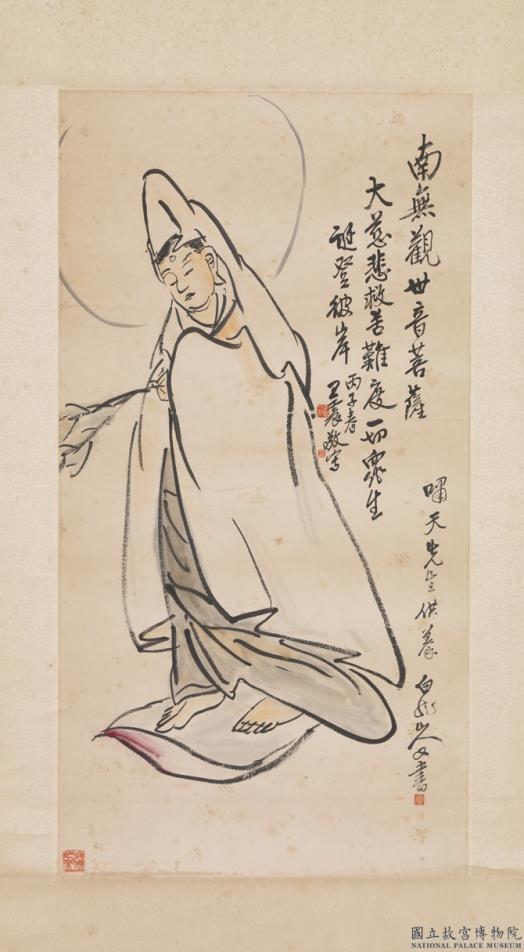 南無觀世音菩薩
大慈悲救苦難度一切眾生
誕登彼岸
丙子春
王震敬寫
嘯天先生供養 白龍山人又書
國立故宮博物院
NATIONAL PALACE MUSEUM